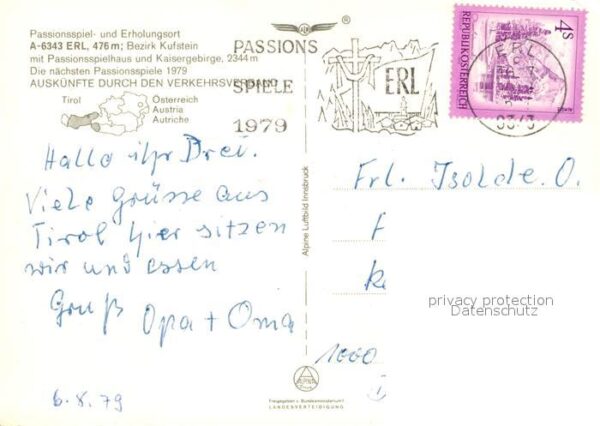 Passionsspiel- und Erholungsort
A-6343 ERL, 476 m; Bezirk Kufstein
mit Passionsspielhaus und Kaisergebirge, 2344 m
Die nächsten Passionsspiele 1979
AUSKÜNFTE DURCH DEN VERKEHRSVERBAND
Tirol
Österreich
Austria
Autriche
PASSIONS
SPIELE
1979
ERL
4S
REPUBLIK ÖSTERREICH
ERL
Hallo ihr Drei.
Viele Grüsse aus
Tirol hier sitzen
wir und essen
Gruß Opa + Oma
6.8.79
Alpine Luftbild Innsbruck
Frl. Isolde. O.
1000
privacy protection
Datenschutz
Freigegeben v. Bundesministerium f.
LANDESVERTEIDIGUNG